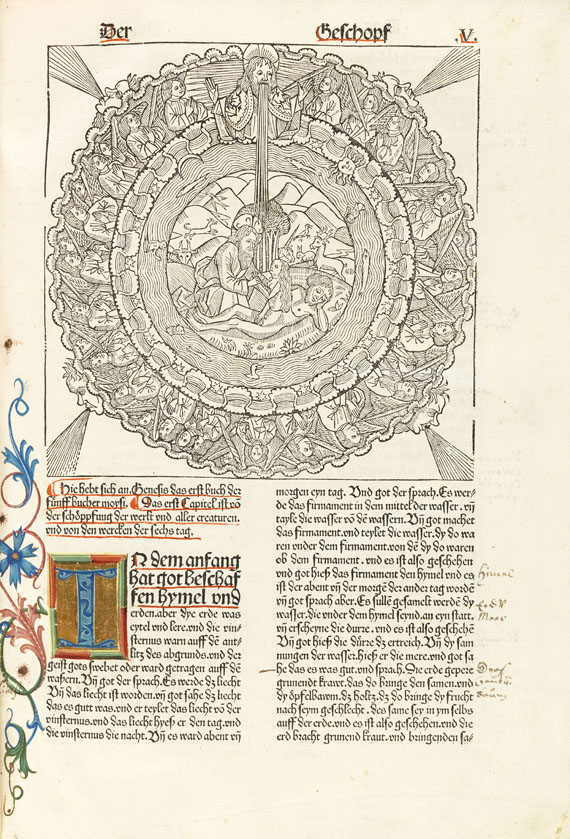 Der Geschopf .V.
Hie hebt sich an. Genesis das erst buch der
fünff bucher moysi. Das erst Capitel ist võ
der schöpffung der werlt vnd aller creaturen.
vnd von den wercken der sechs tag.
IN dem anfang
hat got beschaf
fen hymel vnd
erden. aber dye erde was
eytel vnd lere. vnd die vin⸗
sternus warn auff dẽ ant⸗
litz des abgrunds. vnd der
geist gots swebet oder ward getragen auff dẽ
wassern. Vñ got der sprach. Es werde dz liecht
Vñ das liecht ist worden. vñ got sahe dz liecht
das es gutt was. vnd er teylet das liecht võ der
vinsternus. vnd das liecht hyeß er den tag. vnd
die vinsternus die nacht. Vñ es ward abent vñ
morgen eyn tag. Vnd got der sprach. Es wer⸗
de das firmament in dem mittel der wasser. vñ
tayle die wasser võ dẽ wassern. Vñ got machet
das firmament. vnd teylet die wasser. dy do wa
ren vnder dem firmament. von dẽ dy do waren
ob dem firmament. vnd es ist also geschehen
vnd got hieß das firmament den hymel vnd es
ist der abent vñ der morgẽ der ander tag wordẽ
vñ got sprach aber. Es sullẽ gesamelt werdẽ dy
wasser. die vnder dem hymel seynd. an eyn statt.
vñ erscheyne die durre. vnd es ist also geschehẽ
Vñ got hieß die dürre dz ertreich. Vñ dy sam
nungen der wasser. hieß er die mere. vnd got sa
he das es was gut. vnd sprach. Die erde gepere
grunendt kraut. das do bringe den samen. vnd
dy öpfelbawm. dz holtz. dz do bringe dy frucht
nach seym geschlecht. des same sey in ym selbs
auff der erde. vnd es ist also geschehen. vnd die
erd bracht grunend kraut. vnd bringenden sa⸗